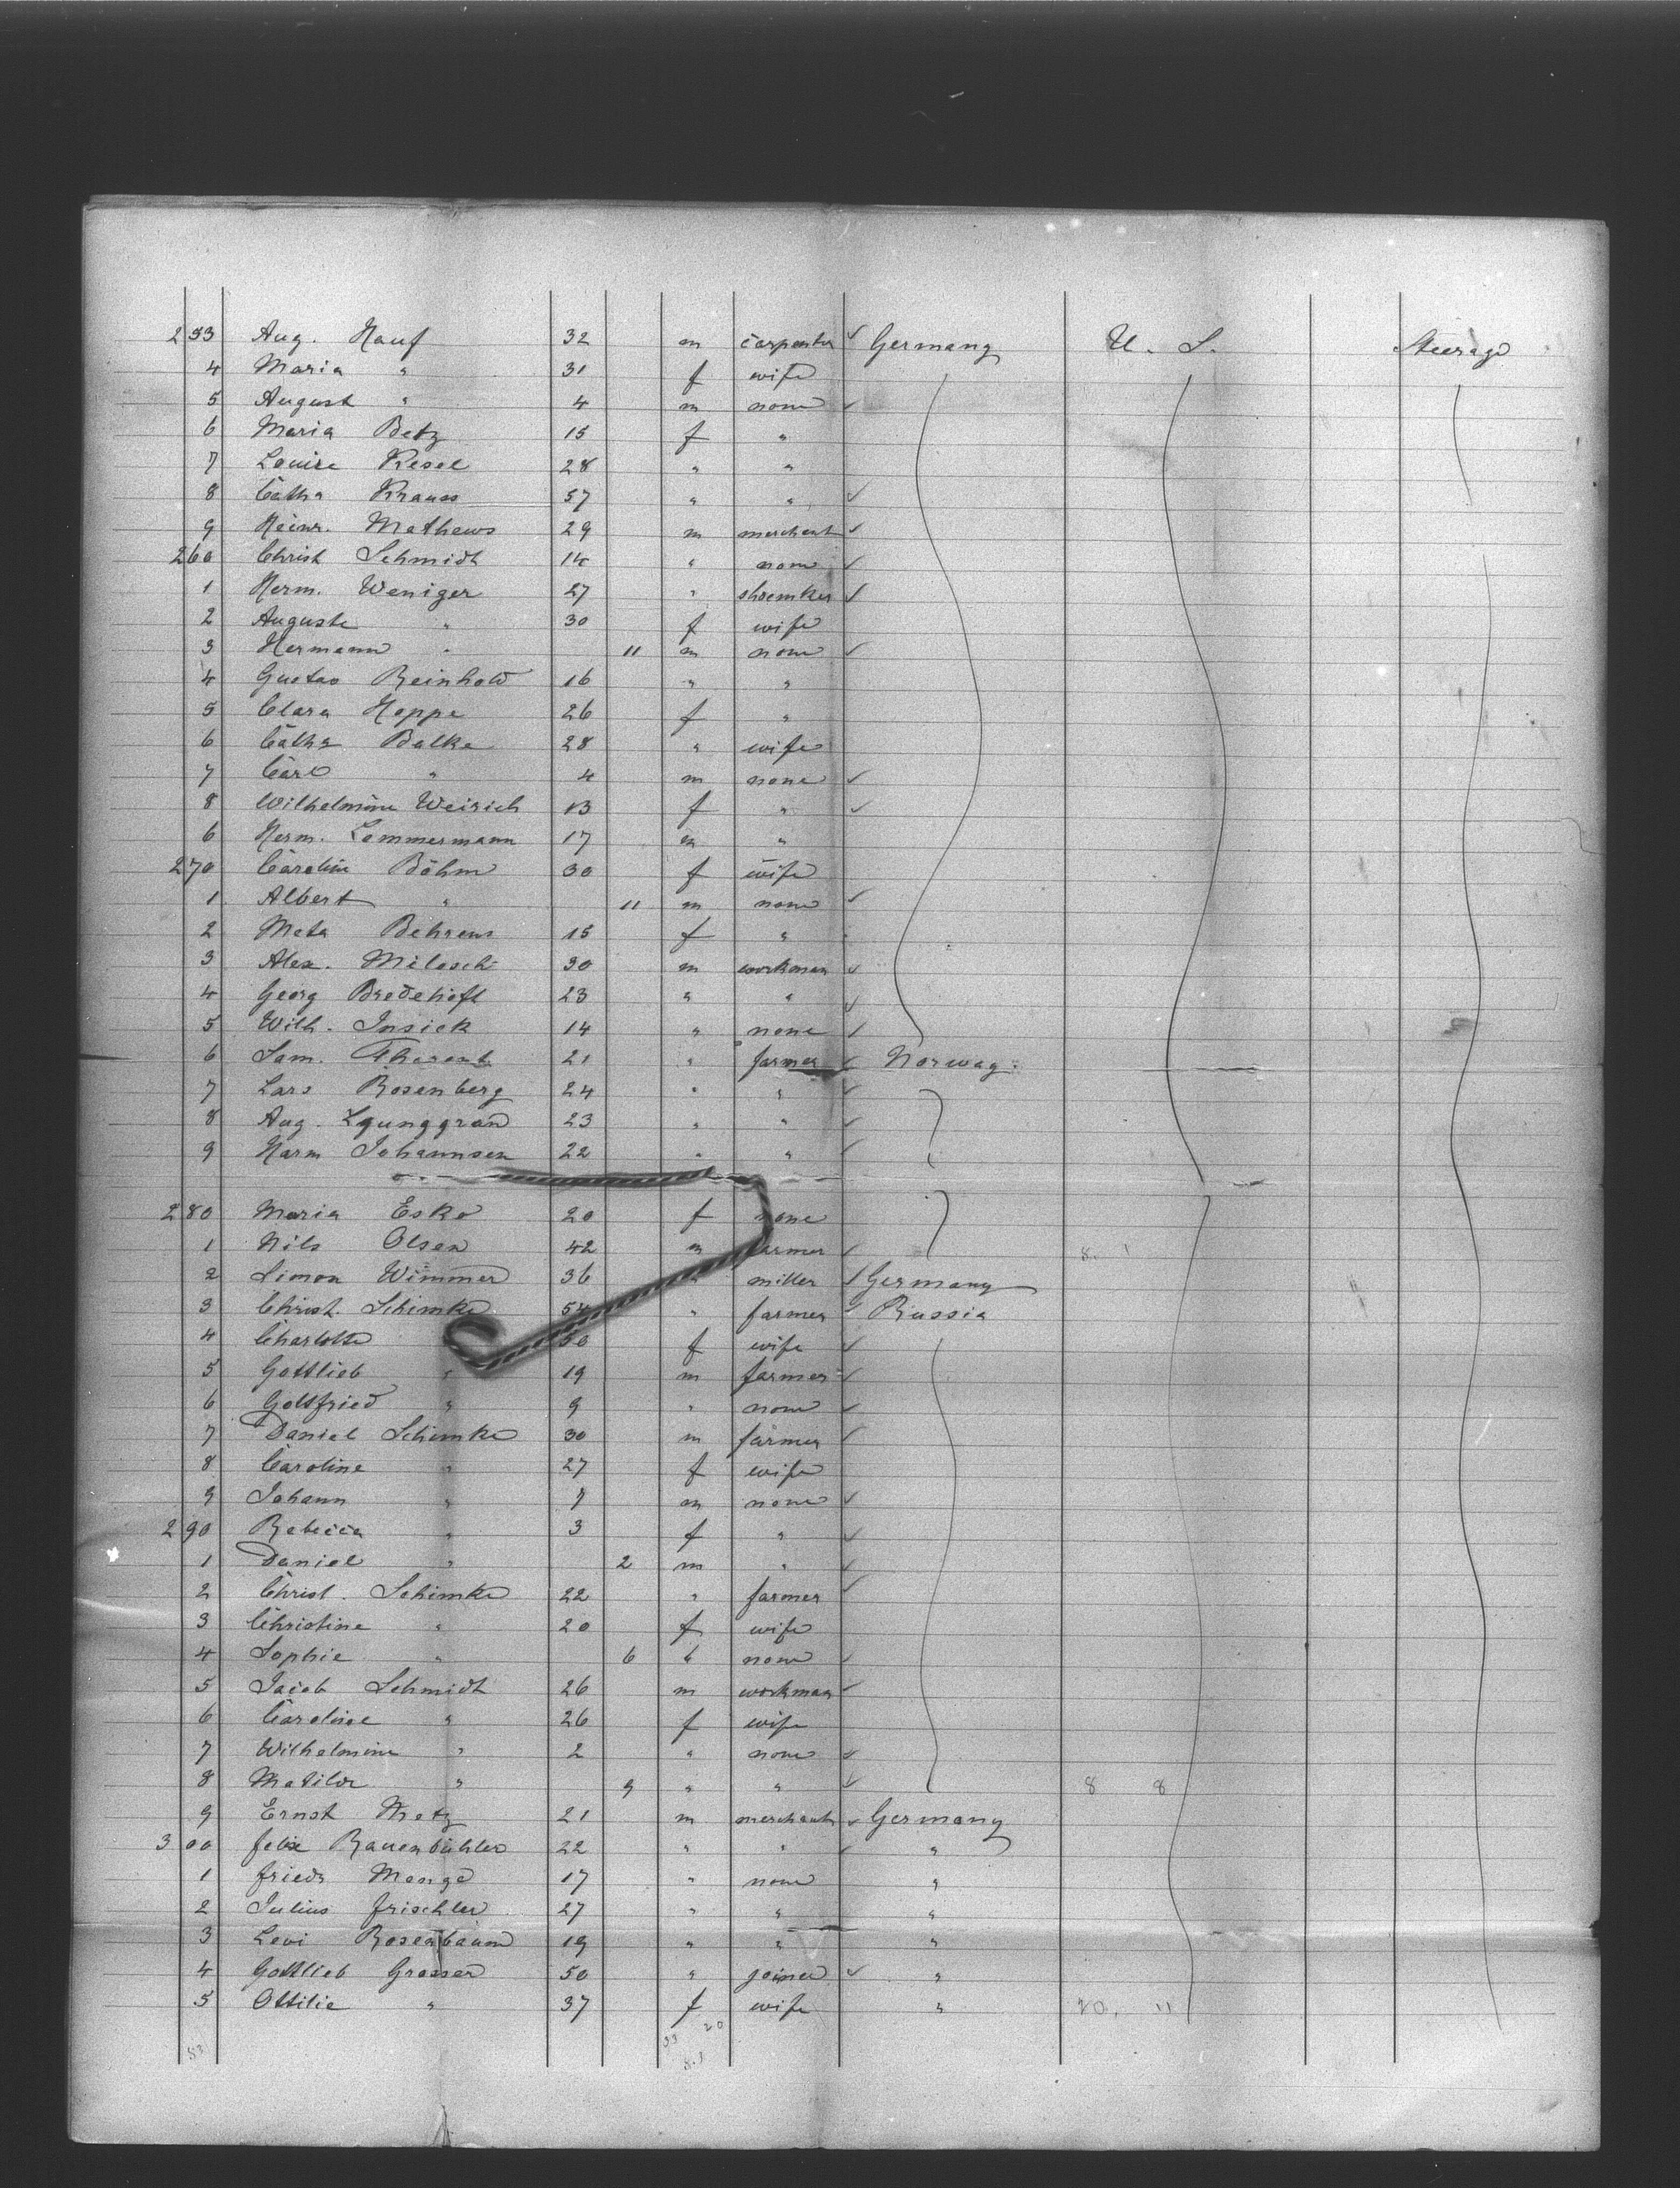 253 Aug. Hauf 32 m carpenter ✓ Germany U. S. Steerage
4 Maria " 31 f wife
5 August " 4 m none ✓
6 Maria Betz 15 f "
7 Louise Resel 28 " "
8 Catha Krauss 57 " " ✓
9 Heinr. Mathews 29 m merchant ✓
260 Christ Schmidt 14 " none ✓
1 Herm. Weniger 27 " shoemker ✓
2 Auguste " 30 f wife
3 Hermann " 11 m none ✓
4 Gustav Reinhold 16 " "
5 Clara Hoppe 26 f "
6 Catha Balke 28 " wife
7 Carl " 4 m none ✓
8 Wilhelmine Weirich 13 f " ✓
6 Herm. Lemmermann 17 m "
270 Caroline Böhm 30 f wife
1 Albert " 11 m none ✓
2 Meta Behrens 15 f "
3 Alex. Milosch 30 m workman ✓
4 Georg Bredehöft 23 " " ✓
5 Wilh. Insick 14 " none ✓
6 Sam. 21 " farmer ✓ Norway
7 Lars Rosenberg 24 " " ✓
8 Aug. Lyunggran 23 " " ✓
9 Harm Johannsen 22 " " ✓
280 Maria Esko 20 f none
1 Nils Olsen 42 m farmer ✓ 8. 1
2 Simon Wimmer 36 " miller ✓ Germany
3 Christ. Schimke 54 " farmer ✓ Russia
4 Charlotte 50 f wife ✓
5 Gottlieb " 19 m farmer ✓
6 Gottfried " 9 " none ✓
7 Daniel Schimke 30 m farmer ✓
8 Caroline " 27 f wife
9 Johann " 7 m none ✓
290 Rebecca " 3 f " ✓
1 Daniel " 2 m " ✓
2 Christ. Schimke 22 " farmer ✓
3 Christine " 20 f wife
4 Sophie " 6 " none ✓
5 Jacob Schmidt 26 m workman ✓
6 Caroline " 26 f wife
7 Wilhelmine " 2 " none ✓
8 Matilde " 9 " " ✓ 8 8
9 Ernst Metz 21 m merchant ✓ Germany
300 Felix Bauernbühler 22 " " ✓ "
1 Friedr Menge 17 " none "
2 Julius Frischler 27 " " "
3 Levi Rosenbaum 19 " " "
4 Gottlieb Grosser 50 " joiner ✓ "
5 Ottilie " 37 f wife " 20, 11
53 33 20